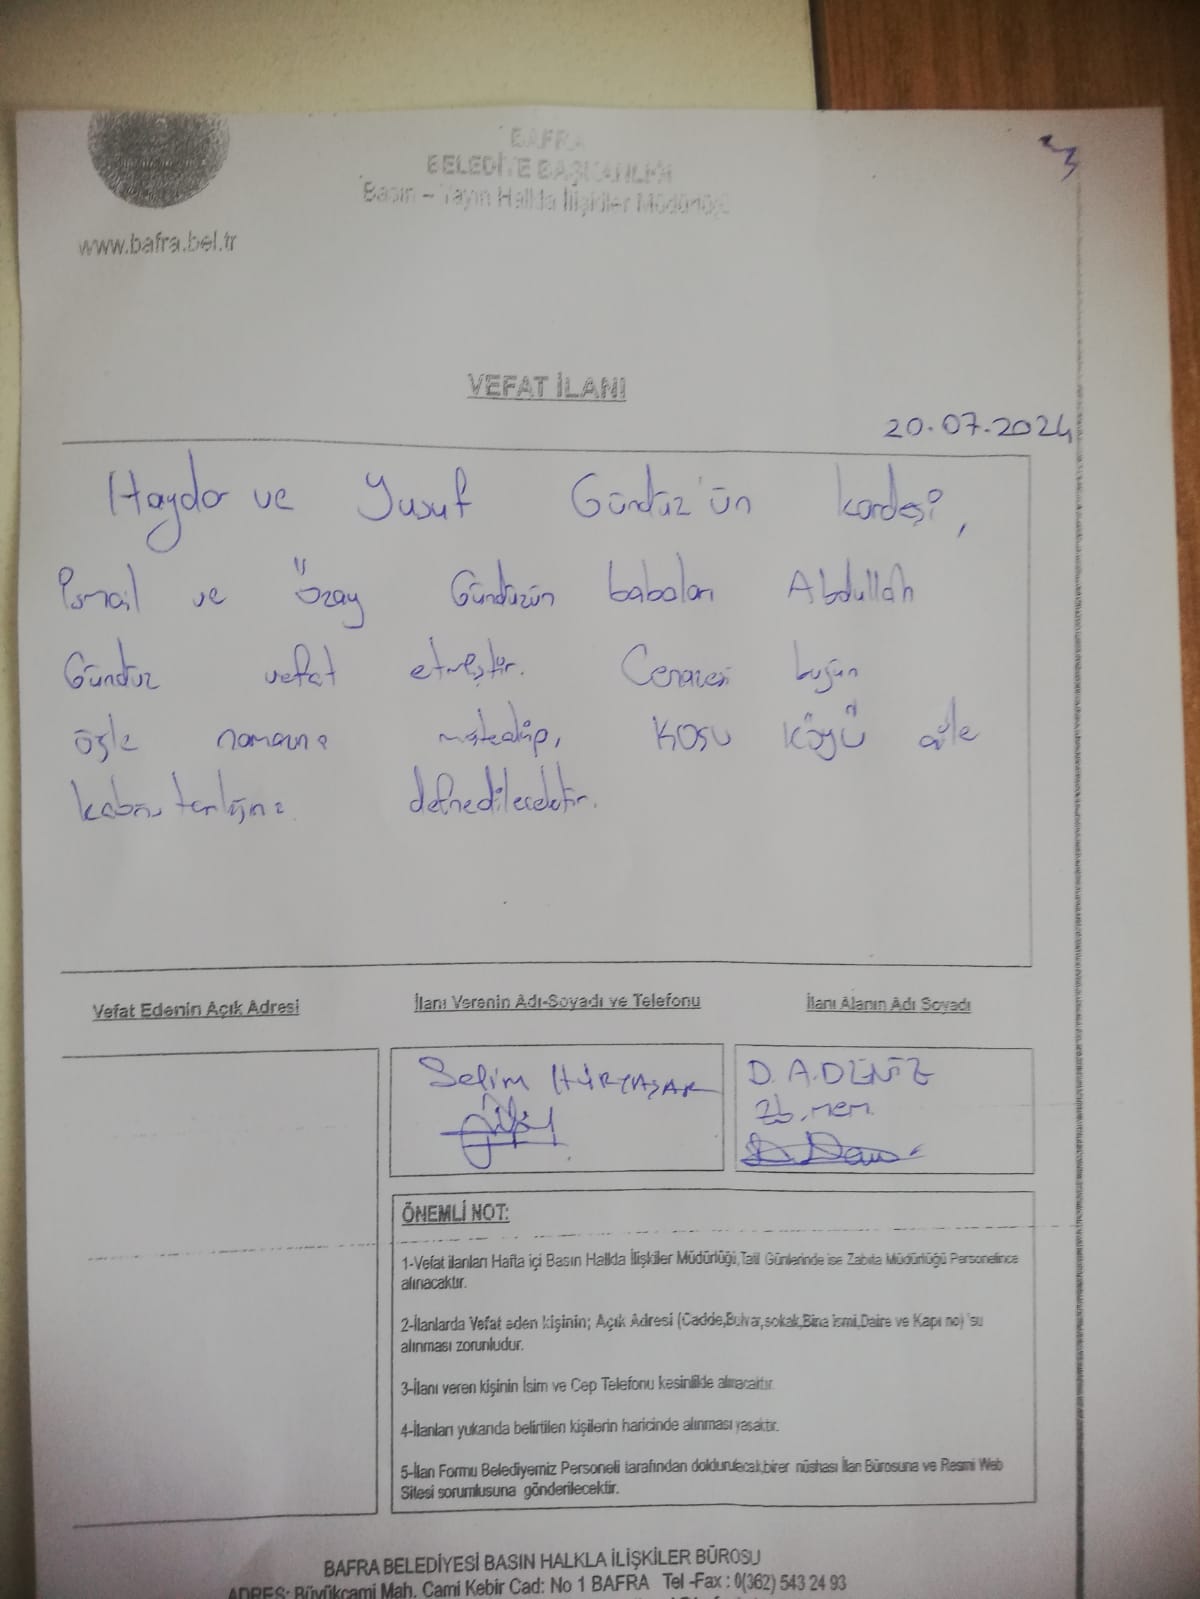 BAFRA
BELEDİYE BAŞKANLIĞI
Basın – Yayın Halkla İlişkiler Müdürlüğü
www.bafra.bel.tr
VEFAT İLANI
20.07.2024
Haydar ve Yusuf Gündüz'ün kardeşi,
İsmail ve Özay Gündüzün babaları Abdullah
Gündüz vefat etmiştir. Cenazesi bugün
öğle namazına müteakip, KOSU KÖYÜ aile
kabristanlığına defnedilecektir.
Vefat Edenin Açık Adresi
İlanı Verenin Adı-Soyadı ve Telefonu
İlanı Alanın Adı Soyadı
Selim HÜRYAŞAR
D. A. DENİZ
Zb. mem.
ÖNEMLİ NOT:
1-Vefat ilanları Hafta içi Basın Halkla İlişkiler Müdürlüğü,Tatil Günlerinde ise Zabıta Müdürlüğü Personelince
alınacaktır.
2-İlanlarda Vefat eden kişinin; Açık Adresi (Cadde,Bulvar,sokak,Bina ismi,Daire ve Kapı no)'su
alınması zorunludur.
3-İlanı veren kişinin İsim ve Cep Telefonu kesinlikle alınacaktır.
4-İlanları yukarıda belirtilen kişilerin haricinde alınması yasaktır.
5-İlan Formu Belediyemiz Personeli tarafından doldurulacak,birer nüshası İlan Bürosuna ve Resmi Web
Sitesi sorumlusuna gönderilecektir.
BAFRA BELEDİYESİ BASIN HALKLA İLİŞKİLER BÜROSU
ADRES: Büyükcami Mah. Cami Kebir Cad: No 1 BAFRA Tel -Fax : 0(362) 543 24 93